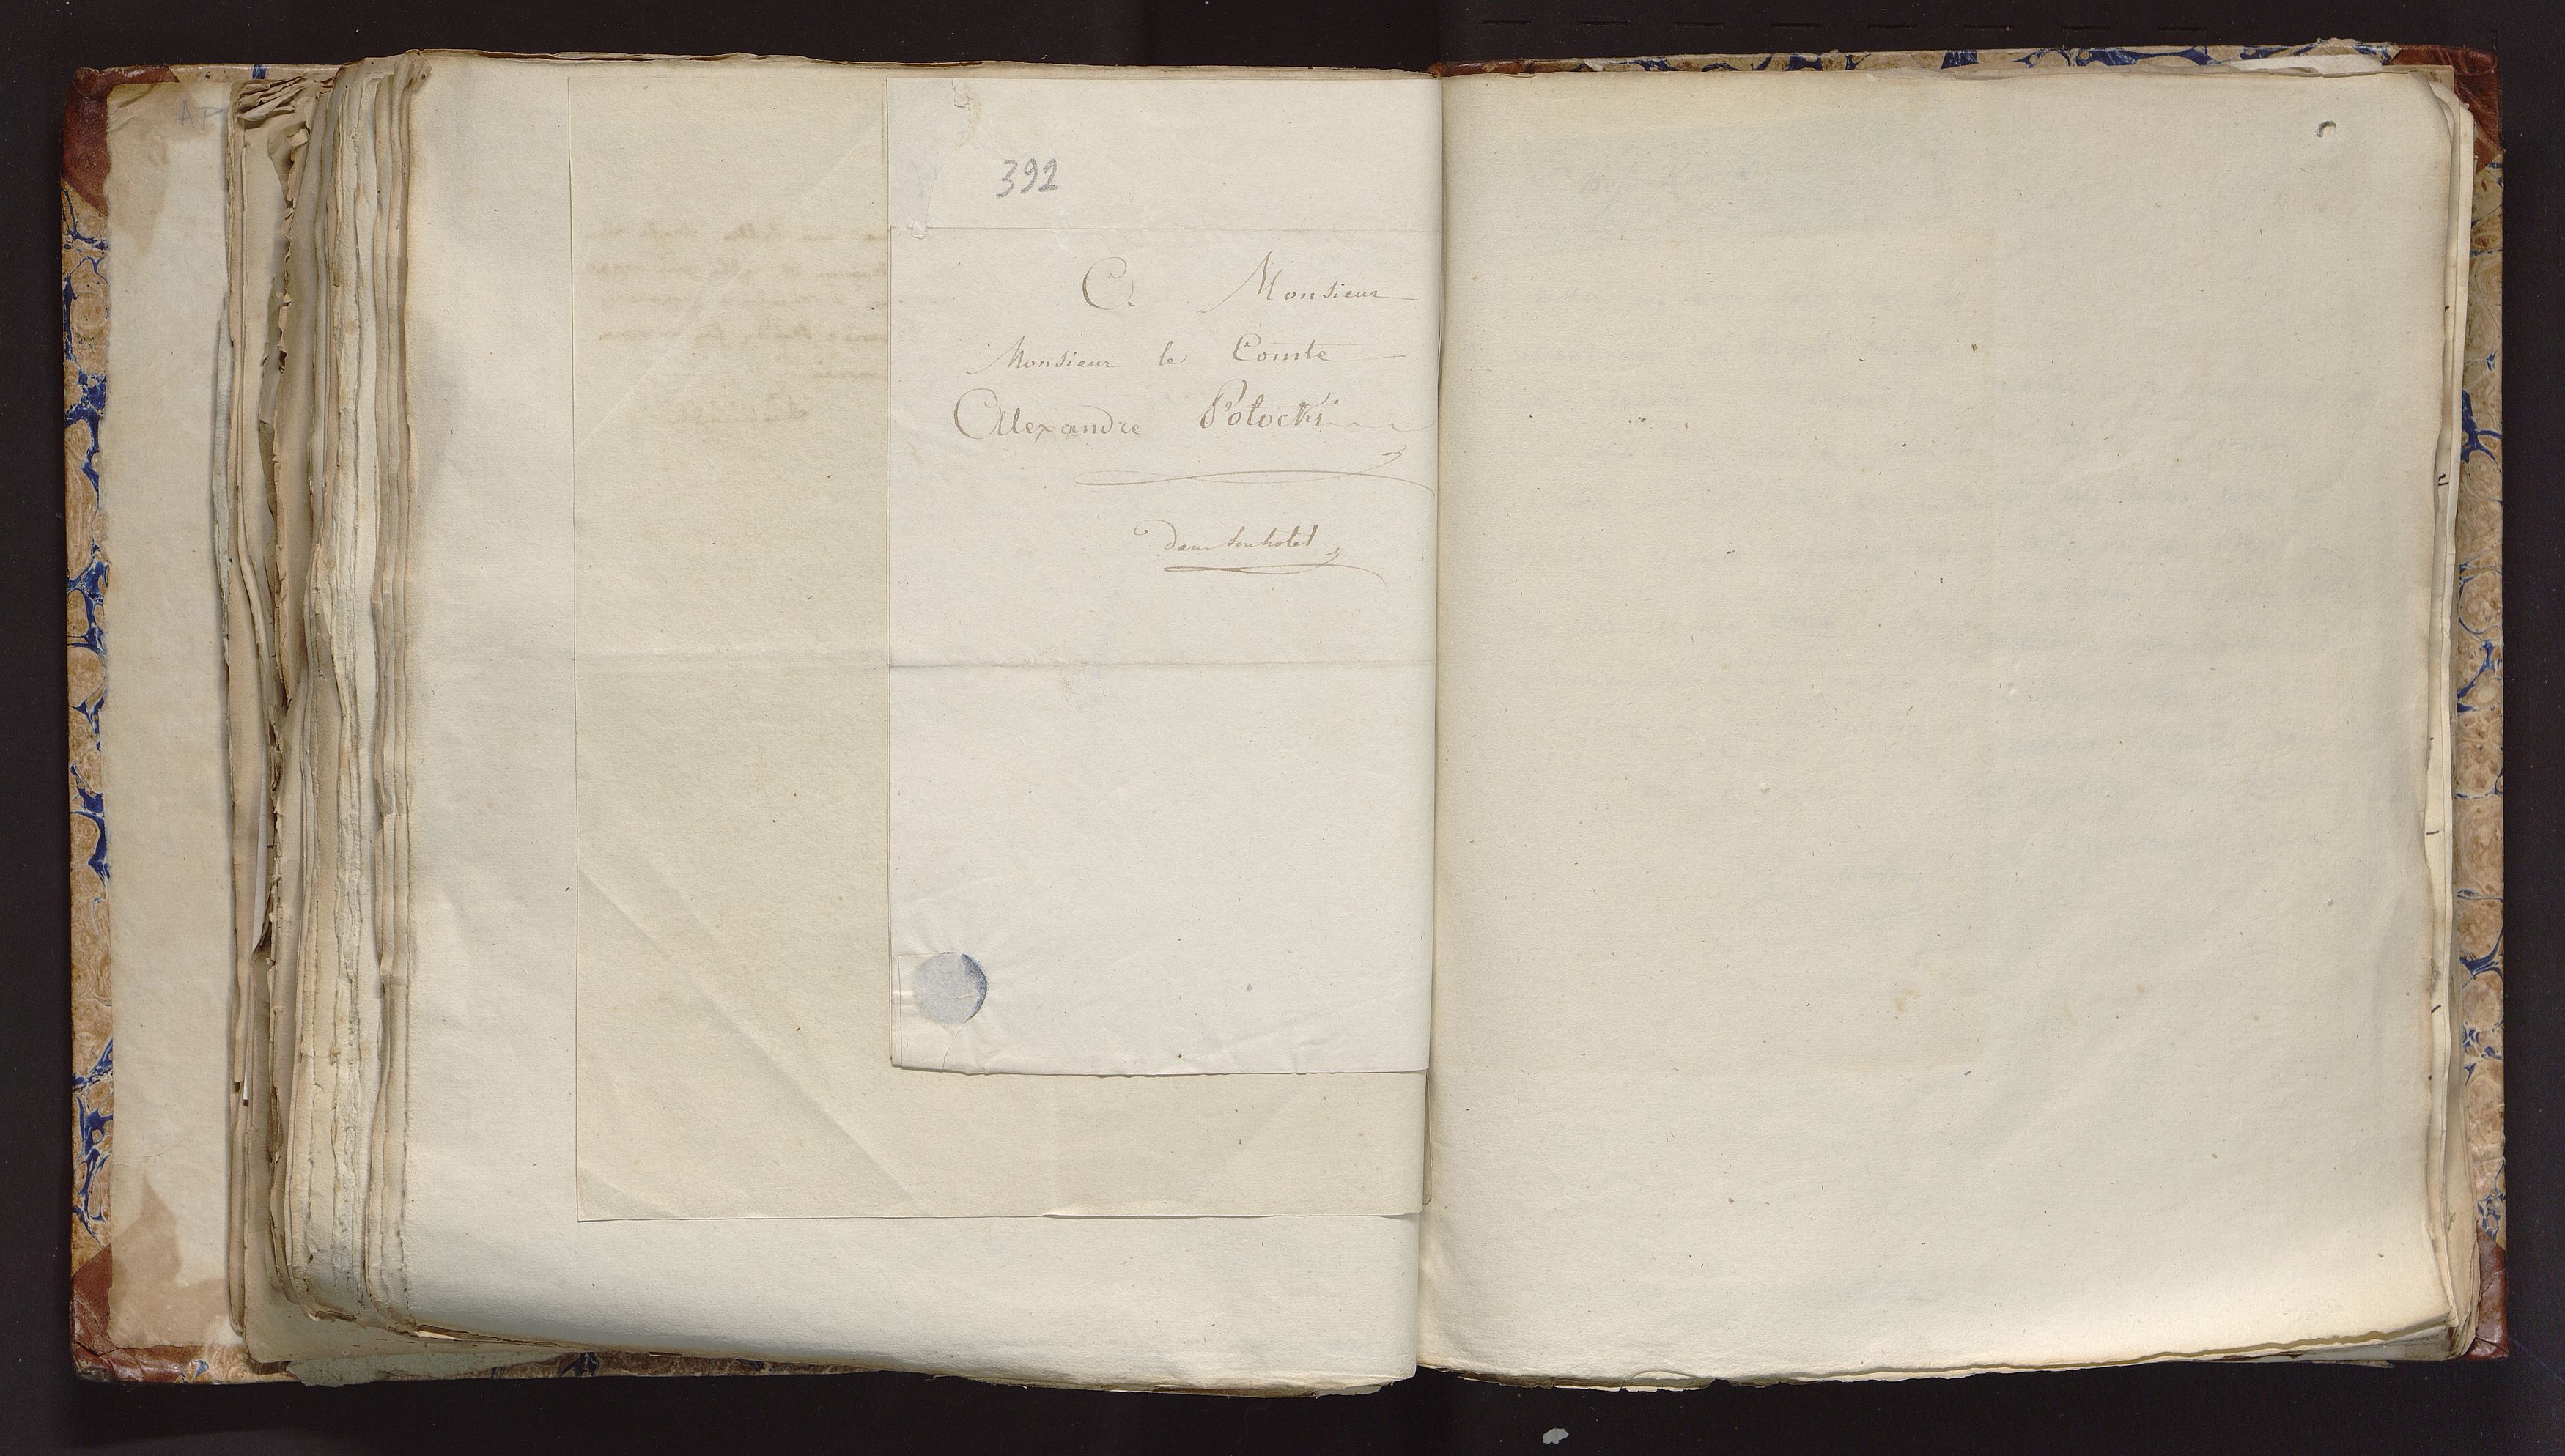 AP
392
A Monsieur
Monsieur le Comte
Alexandre Potocki
dans son hotel